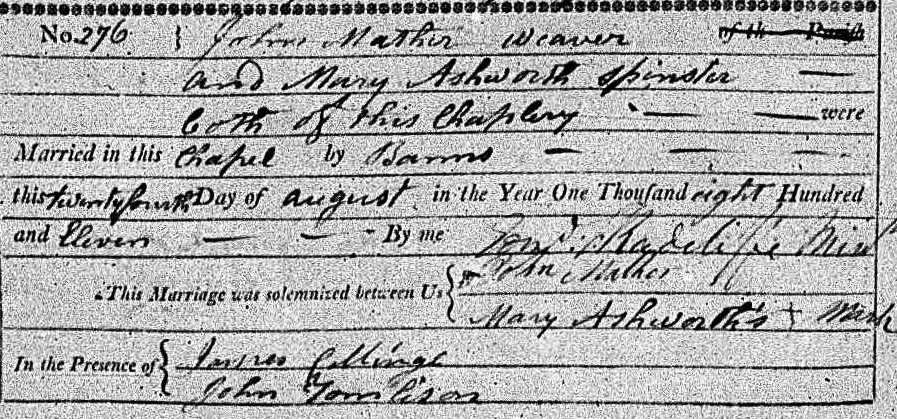 No. 276 } John Mather weaver of th Parish
and Mary Ashworth spinster —
both of this Chaplery — — were
Married in this Chapel by Banns — — —
this twentyfourth Day of august in the Year One Thousand eight Hundred
and Eleven — — By me Radcliffe Minr
This Marriage was solemnized between Us { John Mather
Mary Ashworth's + Mark
In the Presence of { James Collinge
John Tomlison